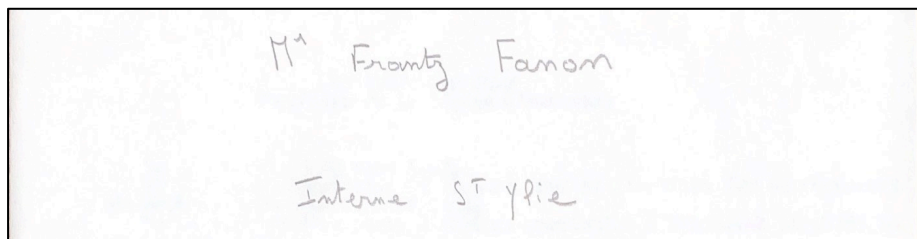 Mʳ Frantz Fanon
Interne Sᵀ Ylie